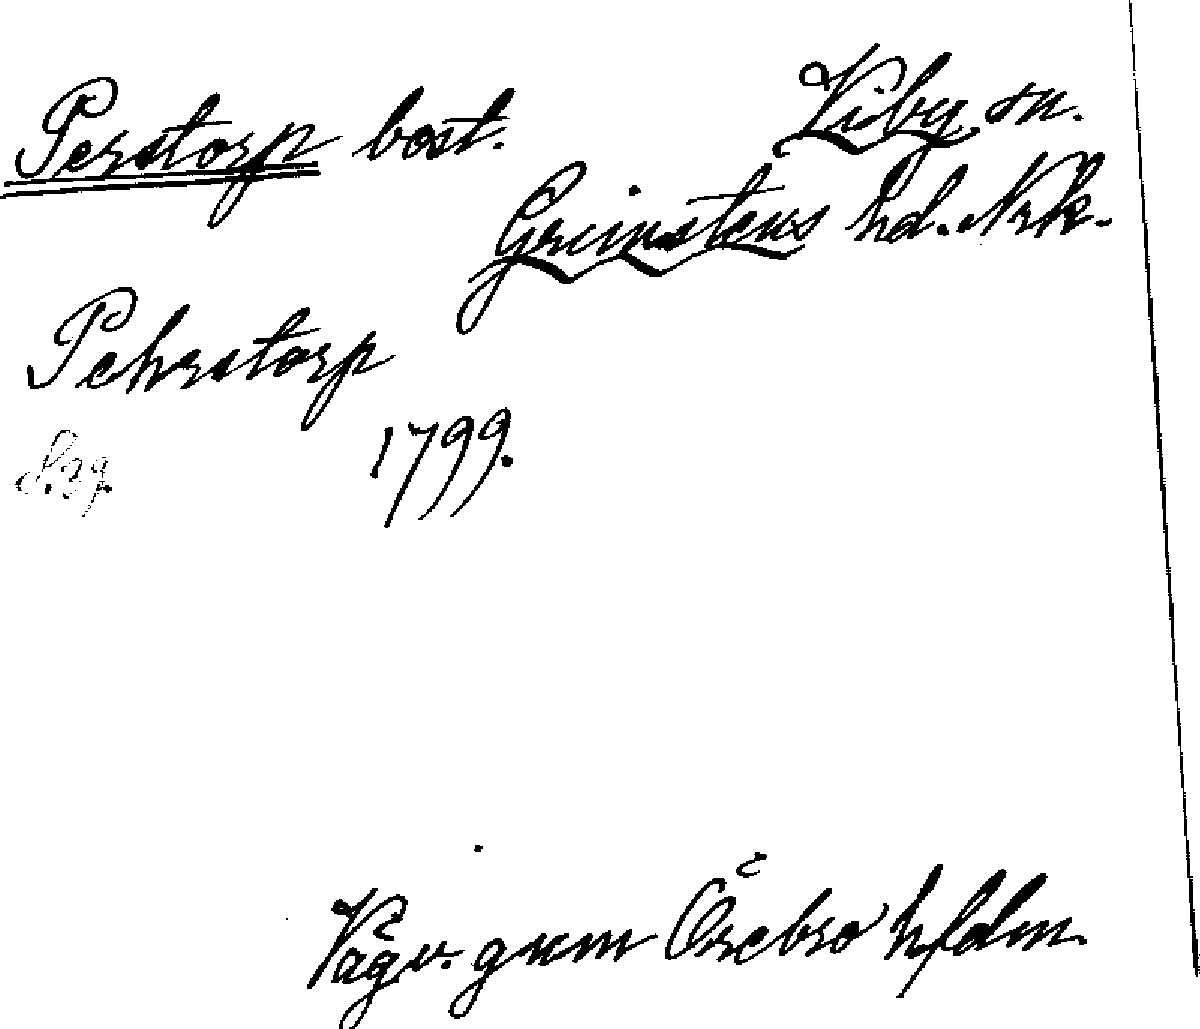 Perstorp bost. Viby sn.
Grimstens hd. Nrk.
Pehrstorp
S. 39. 1799.
Vägv. gnm Örebro hfdm.